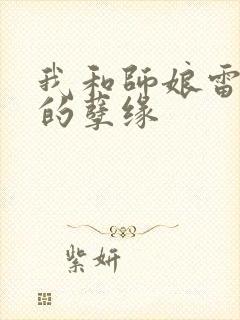 我和師娘雷
的孽缘
紫妍